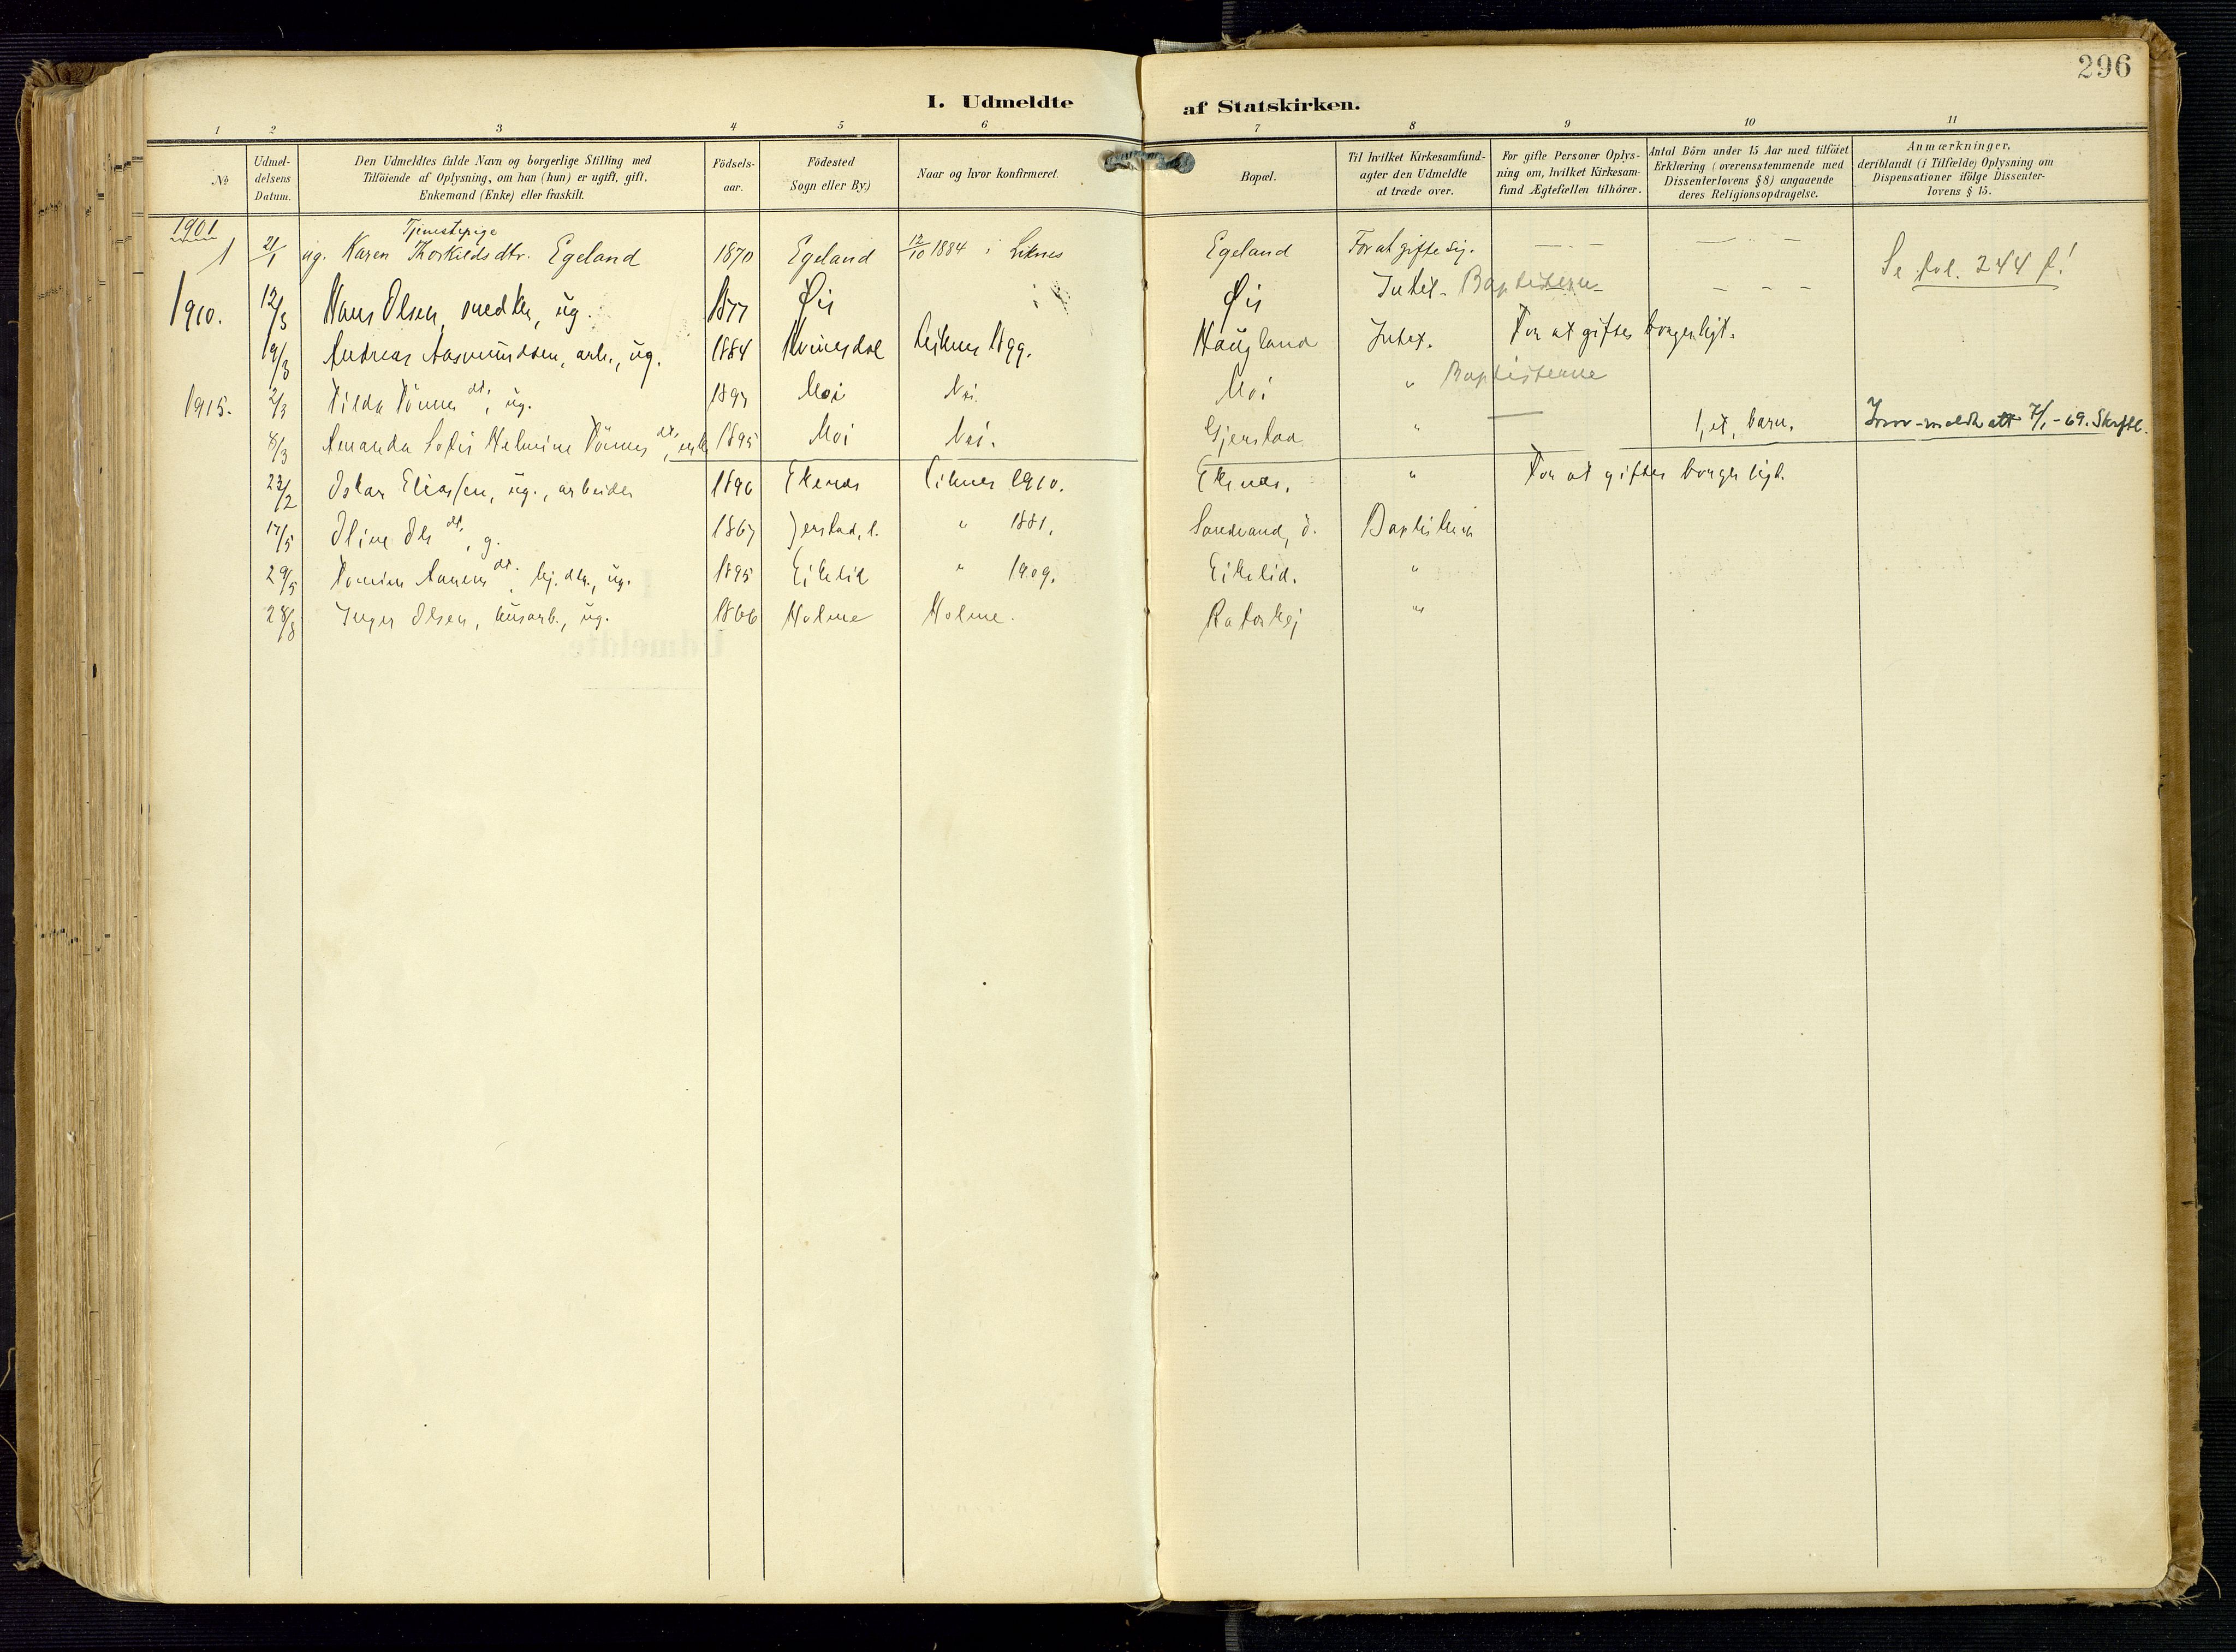 296
I. Udmeldte af Statskirken.
1 2 3 4 5 6 7 8 9 10 11
№
Udmel-
delsens
Datum.
Den Udmeldtes fulde Navn og borgerlige Stilling med
Tilföiende af Oplysning, om han (hun) er ugift, gift,
Enkemand (Enke) eller fraskilt.
Födsels-
aar.
Födested
Sogn eller By.)
Naar og hvor konfirmeret.
Bopæl.
Til hvilket Kirkesamfund-
agter den Udmeldte
at træde over.
For gifte Personer Oplys-
ning om, hvilket Kirkesam-
fund Ægtefællen tilhörer.
Antal Börn under 15 Aar med tilföiet
Erklæring (overensstemmende med
Dissenterlovens § 8) angaaende
deres Religionsopdragelse.
Anmærkninger,
deriblandt (i Tilfælde) Oplysning om
Dispensationer ifölge Dissenter-
lovens § 15.
1901
Tjenestepige
1 21/1 ug. Karen Thorkildsdtr. Egeland 1870 Egeland 12/10 1884 i Liknes Egeland For at gifte sig. — · — — · — Se fol. 244 f!
1910. 12/3 Hans Olsen, snedker, ug. 1877 Øis Øis Intet - Baptisterne - — — —
19/3 Andreas Aasmundsen, arb., ug. 1884 Kvinesdal Liknes 1899. Haugland Intet. For at giftes borgerligt.
1915. 2/3 Tilda Tönnes dt., ug. 1897 Moi Nei. Moi " Baptisterne
8/3 Amanda Sofie Helmine Tönnes dt., enke 1895 Moi Nei. Gjerstad " — 1, et, barn. Innmeldt att 7/1 - 69. Skriftl.
22/2 Oskar Eliassen, ug., arbeider 1896 Ekenes Liknes 1910. Ekenes. " For at giftes borgerligt.
17/5 Oline Ols dt., g. 1867 Jerstad, l. " 1881. Sandvand, ö. Baptisterne
29/5 Tomine Aanens dt. hj. dtr., ug. 1895 Eikelid " 1909. Eikelid. "
28/8 Inger Olsen, husarb., ug. 1866 Holme Holme. "